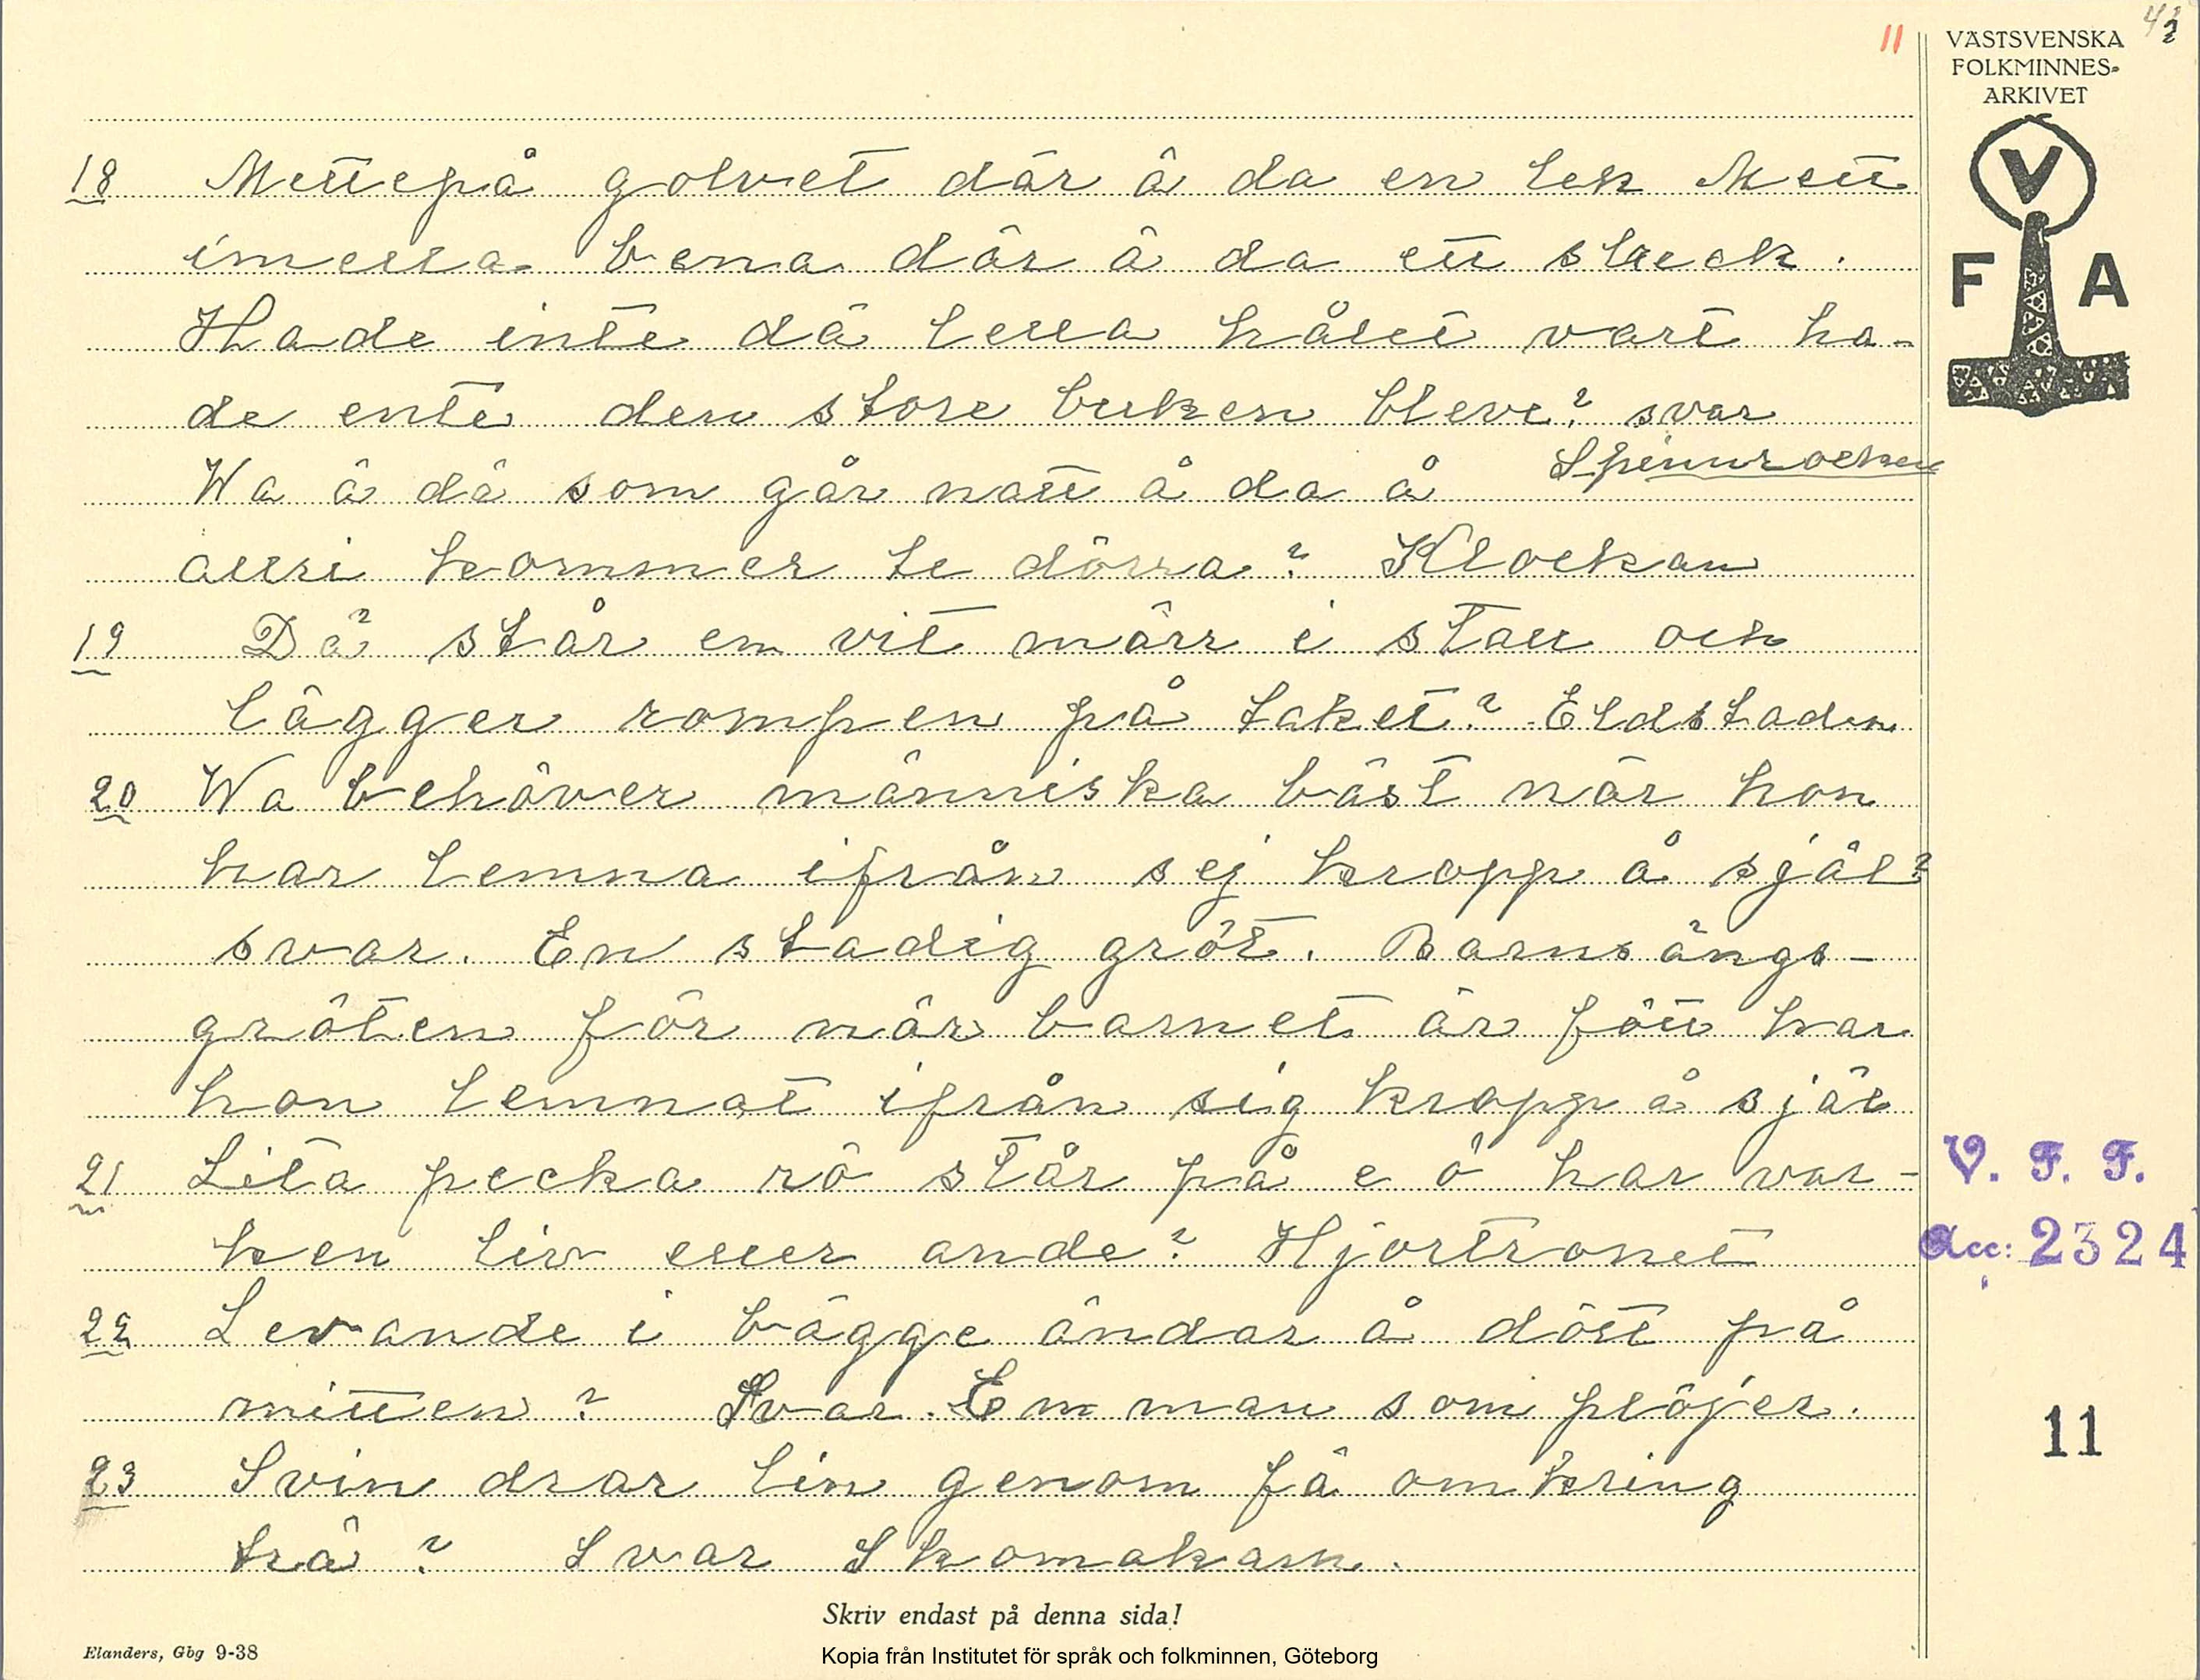 11
42
VÄSTSVENSKA
FOLKMINNES-
ARKIVET
V
F A
18 Mittepå golvet där ä da en lek Mitt
imella bena där ä da ett släck.
Hade inte dä lella hålet vart ha-
de ente den store buken bleve? svar
Spinnrocken
Wa ä dä som går natt å da å
alli kommer te dörra? Klockan
19 Dä står en vit märr i stall och
lägger rompen på taket? Eldstaden
20 Wa behöver människa bäst när hon
har lemna ifrån sej kropp å själ?
svar. En stadig gröt. Barnsängs-
gröten för när barnet är fött har
hon lemnat ifrån sig kropp å själ
21 Lita pecka rö står på e ö har var-
ken liv eller ande? Hjortronet
22 Levande i bägge ändar å dött på
mitten? Svar. En man som plöjer.
23 Svin drar lin genom fä omkring
trä? Svar Skomakarn.
V. F. F.
Acc: 2324
11
Skriv endast på denna sida!
Elanders, Gbg 9-38
Kopia från Institutet för språk och folkminnen, Göteborg